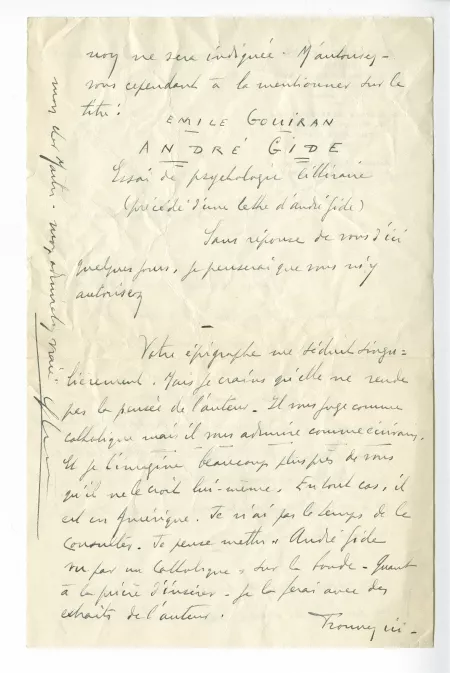 ne sera indiquée. M'autorisez-
vous cependant à la mentionner sur le
titre :
EMILE GOUIRAN
ANDRÉ GIDE
Essai de psychologie littéraire
(précédé d'une lettre d'André Gide)
Sans réponse de vous d'ici
quelques jours, je penserai que vous m'y
autorisez
—
Votre épigraphe me séduit singu-
lièrement. Mais je crains qu'elle ne rende
pas la pensée de l'auteur. Il vous juge comme
catholique mais il vous admire comme écrivain.
Et je l'imagine beaucoup plus près de vous
qu'il ne le croit lui-même. En tout cas, il
est en Amérique. Je n'ai pas le temps de le
consulter. Je pense mettre "André Gide
vu par un Catholique" sur la bande. Quant
à la prière d'insérer - je la ferai avec des
extraits de l'auteur.
Trouvez ici -
mon cher Maître - mon